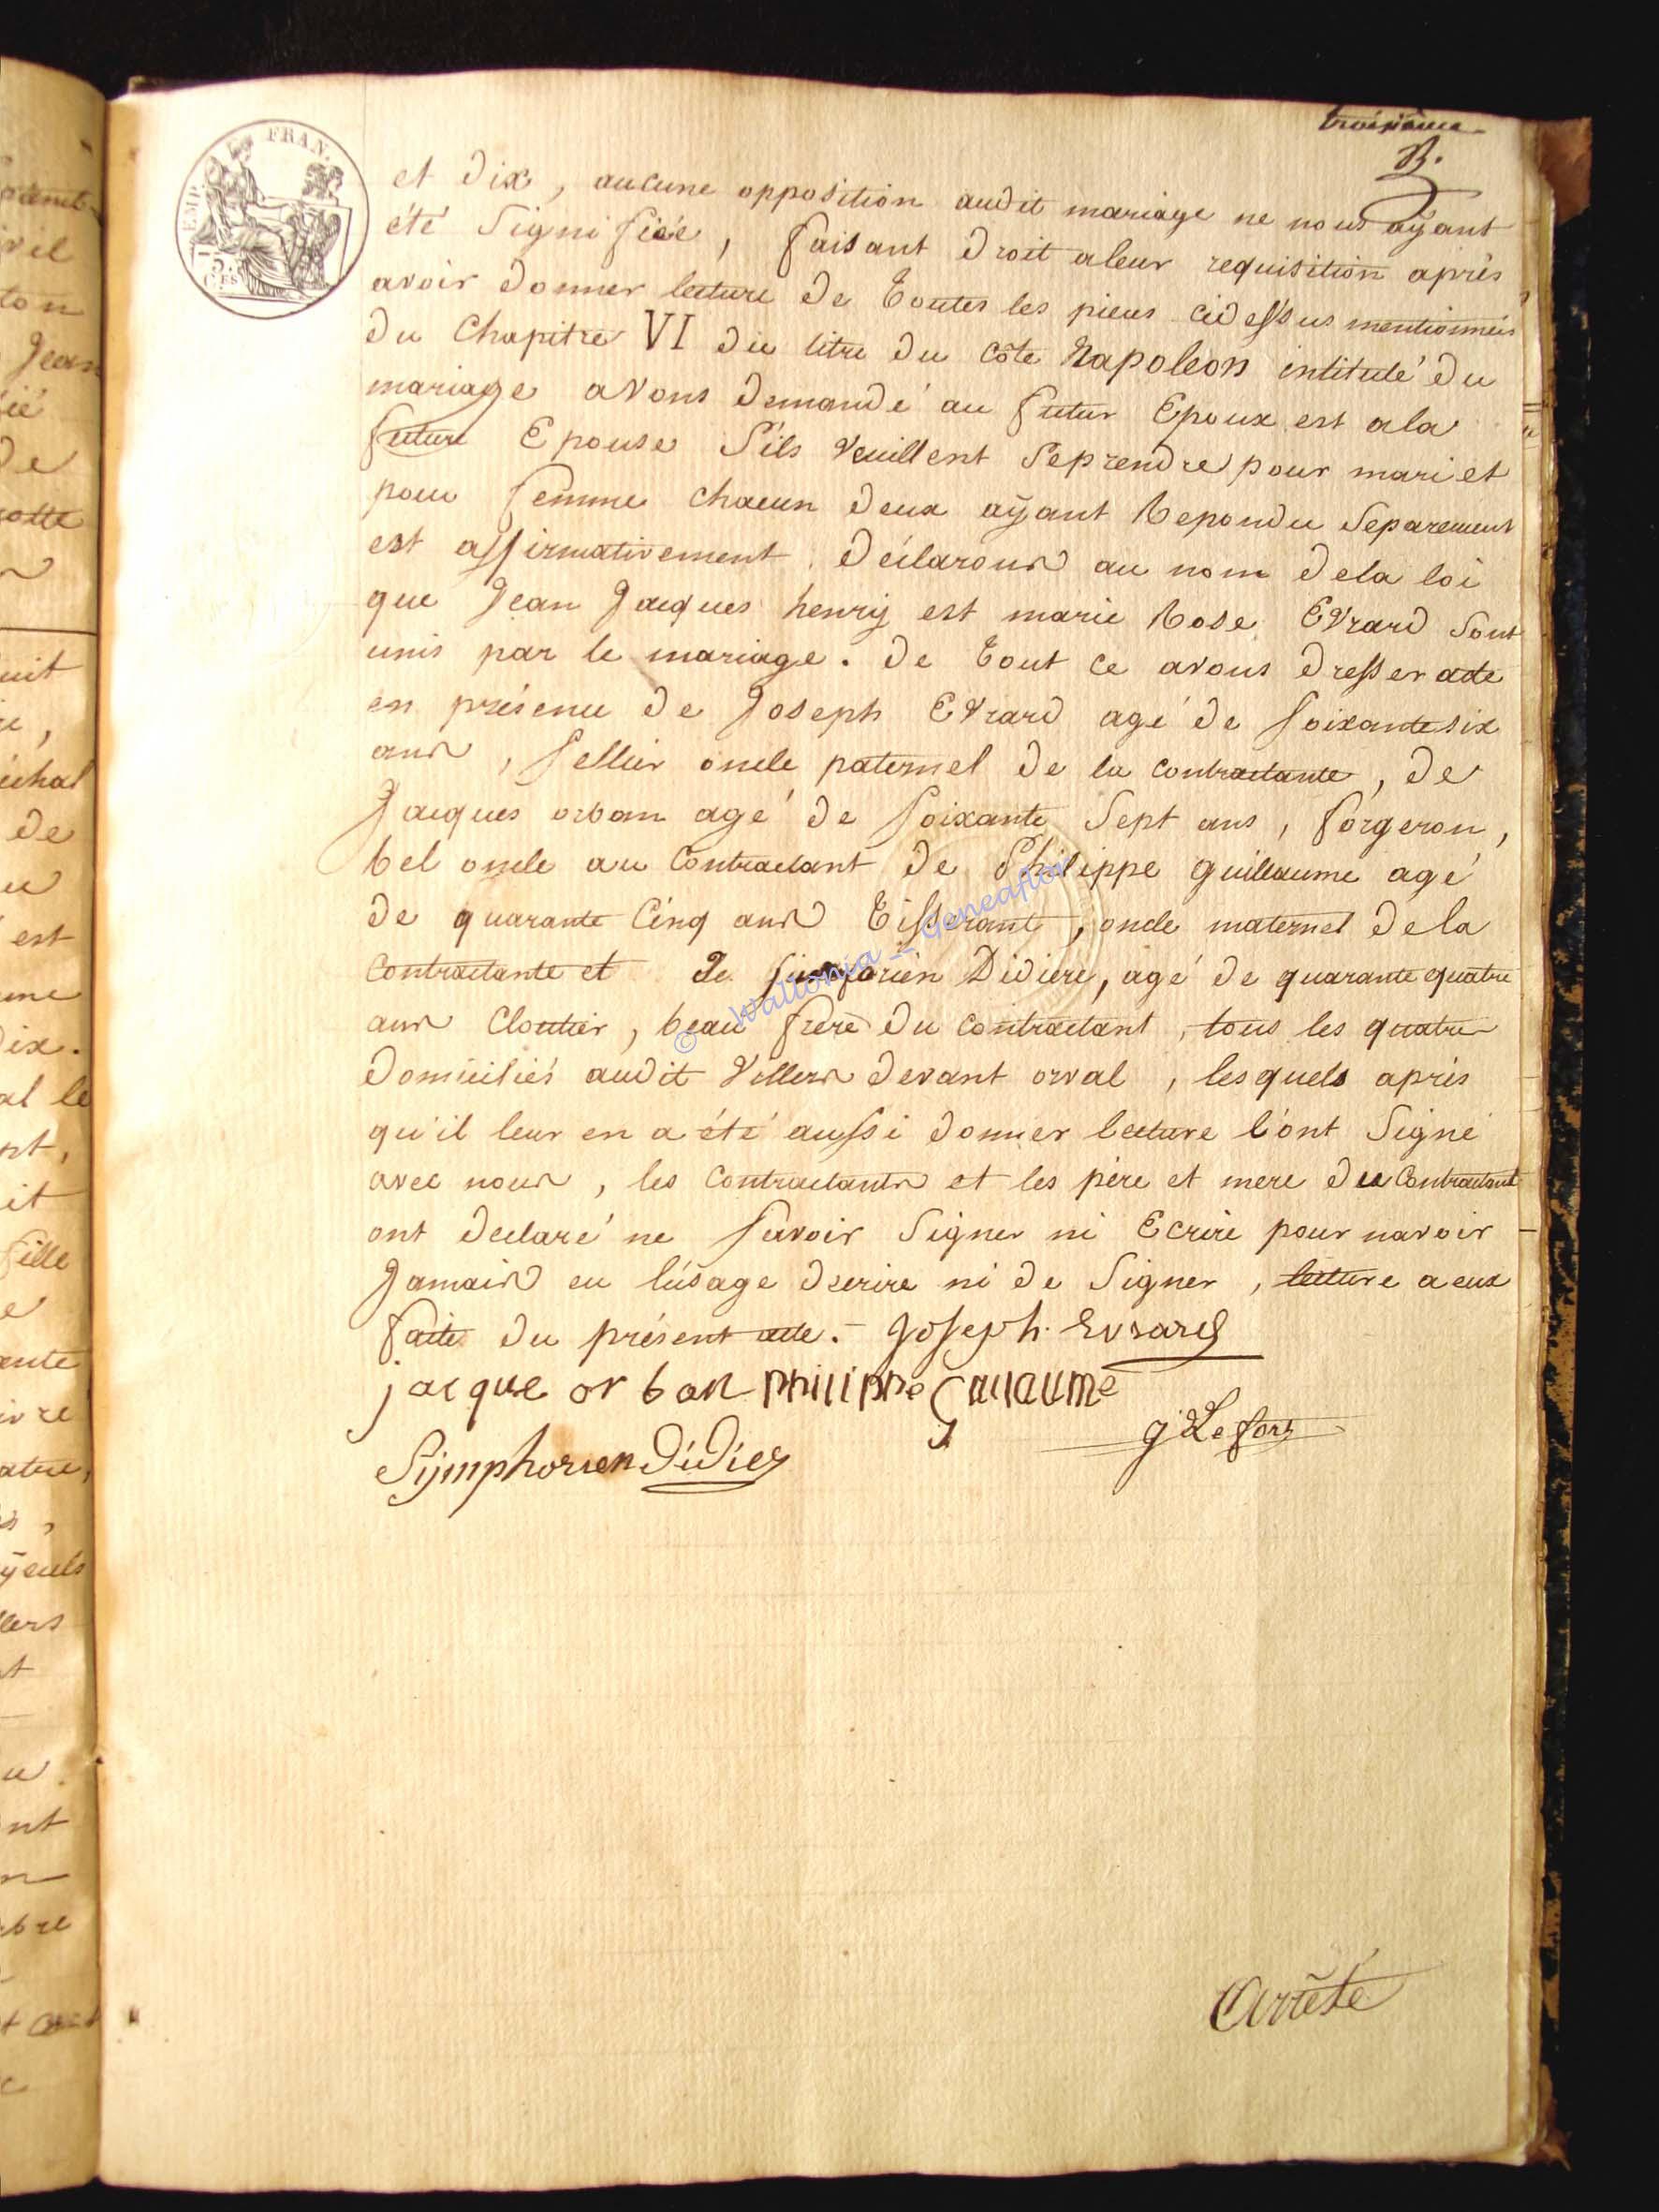 troisième
B.
EMP. FRAN.
75.
CES
et dix, aucune opposition audit mariage ne nous aÿant
été Signifiéé, faisant droit aleur requisition après
avoir donner lecture de toutes les pieces cidessus mentionnéis
du Chapitre VI du titre du côte Napoleon intitulé du
mariage avons demandé au futur Epoux est ala
future Epouse S'ils veuillent Seprendre pour mari et
pour femme chacun deux aÿant Repondu Separement
est affirmativement, déclarons au nom dela loi
que Jean Jacques henrÿ est marie Rose EVrard Sont
unis par le mariage. de tout ce avons dresser acte
en présence de Joseph EVrard agé de soixante six
ans, Sellier oncle paternel de la contractante, de
Jacques orban agé de Soixante Sept ans, forgeron,
bel oncle au Contractant de Philippe guillaume agé
de quarante Cinq ans Tisserant, oncle maternel dela
contractante et de Simforien Didiere, agé de quarante quatre
ans Cloutier, beau frere du contractant, tous les quatre
domiciliés audit Villers devant orval, lesquels après
qu'il leur en a été aussi donner lecture l'ont Signé
avec nous, les contractants et les pére et mere du Contractant
ont declaré ne Savoir Signer ni Ecrire pour navoir
Jamais eu lusage decrire ni de Signer, lecture a eux
faite du présent acte. - Joseph. Evrard
jacque orban philippe Gallaume
g Lefort
Sijmphorien Didier
Arrêté
© Wallonia - Geneaflor